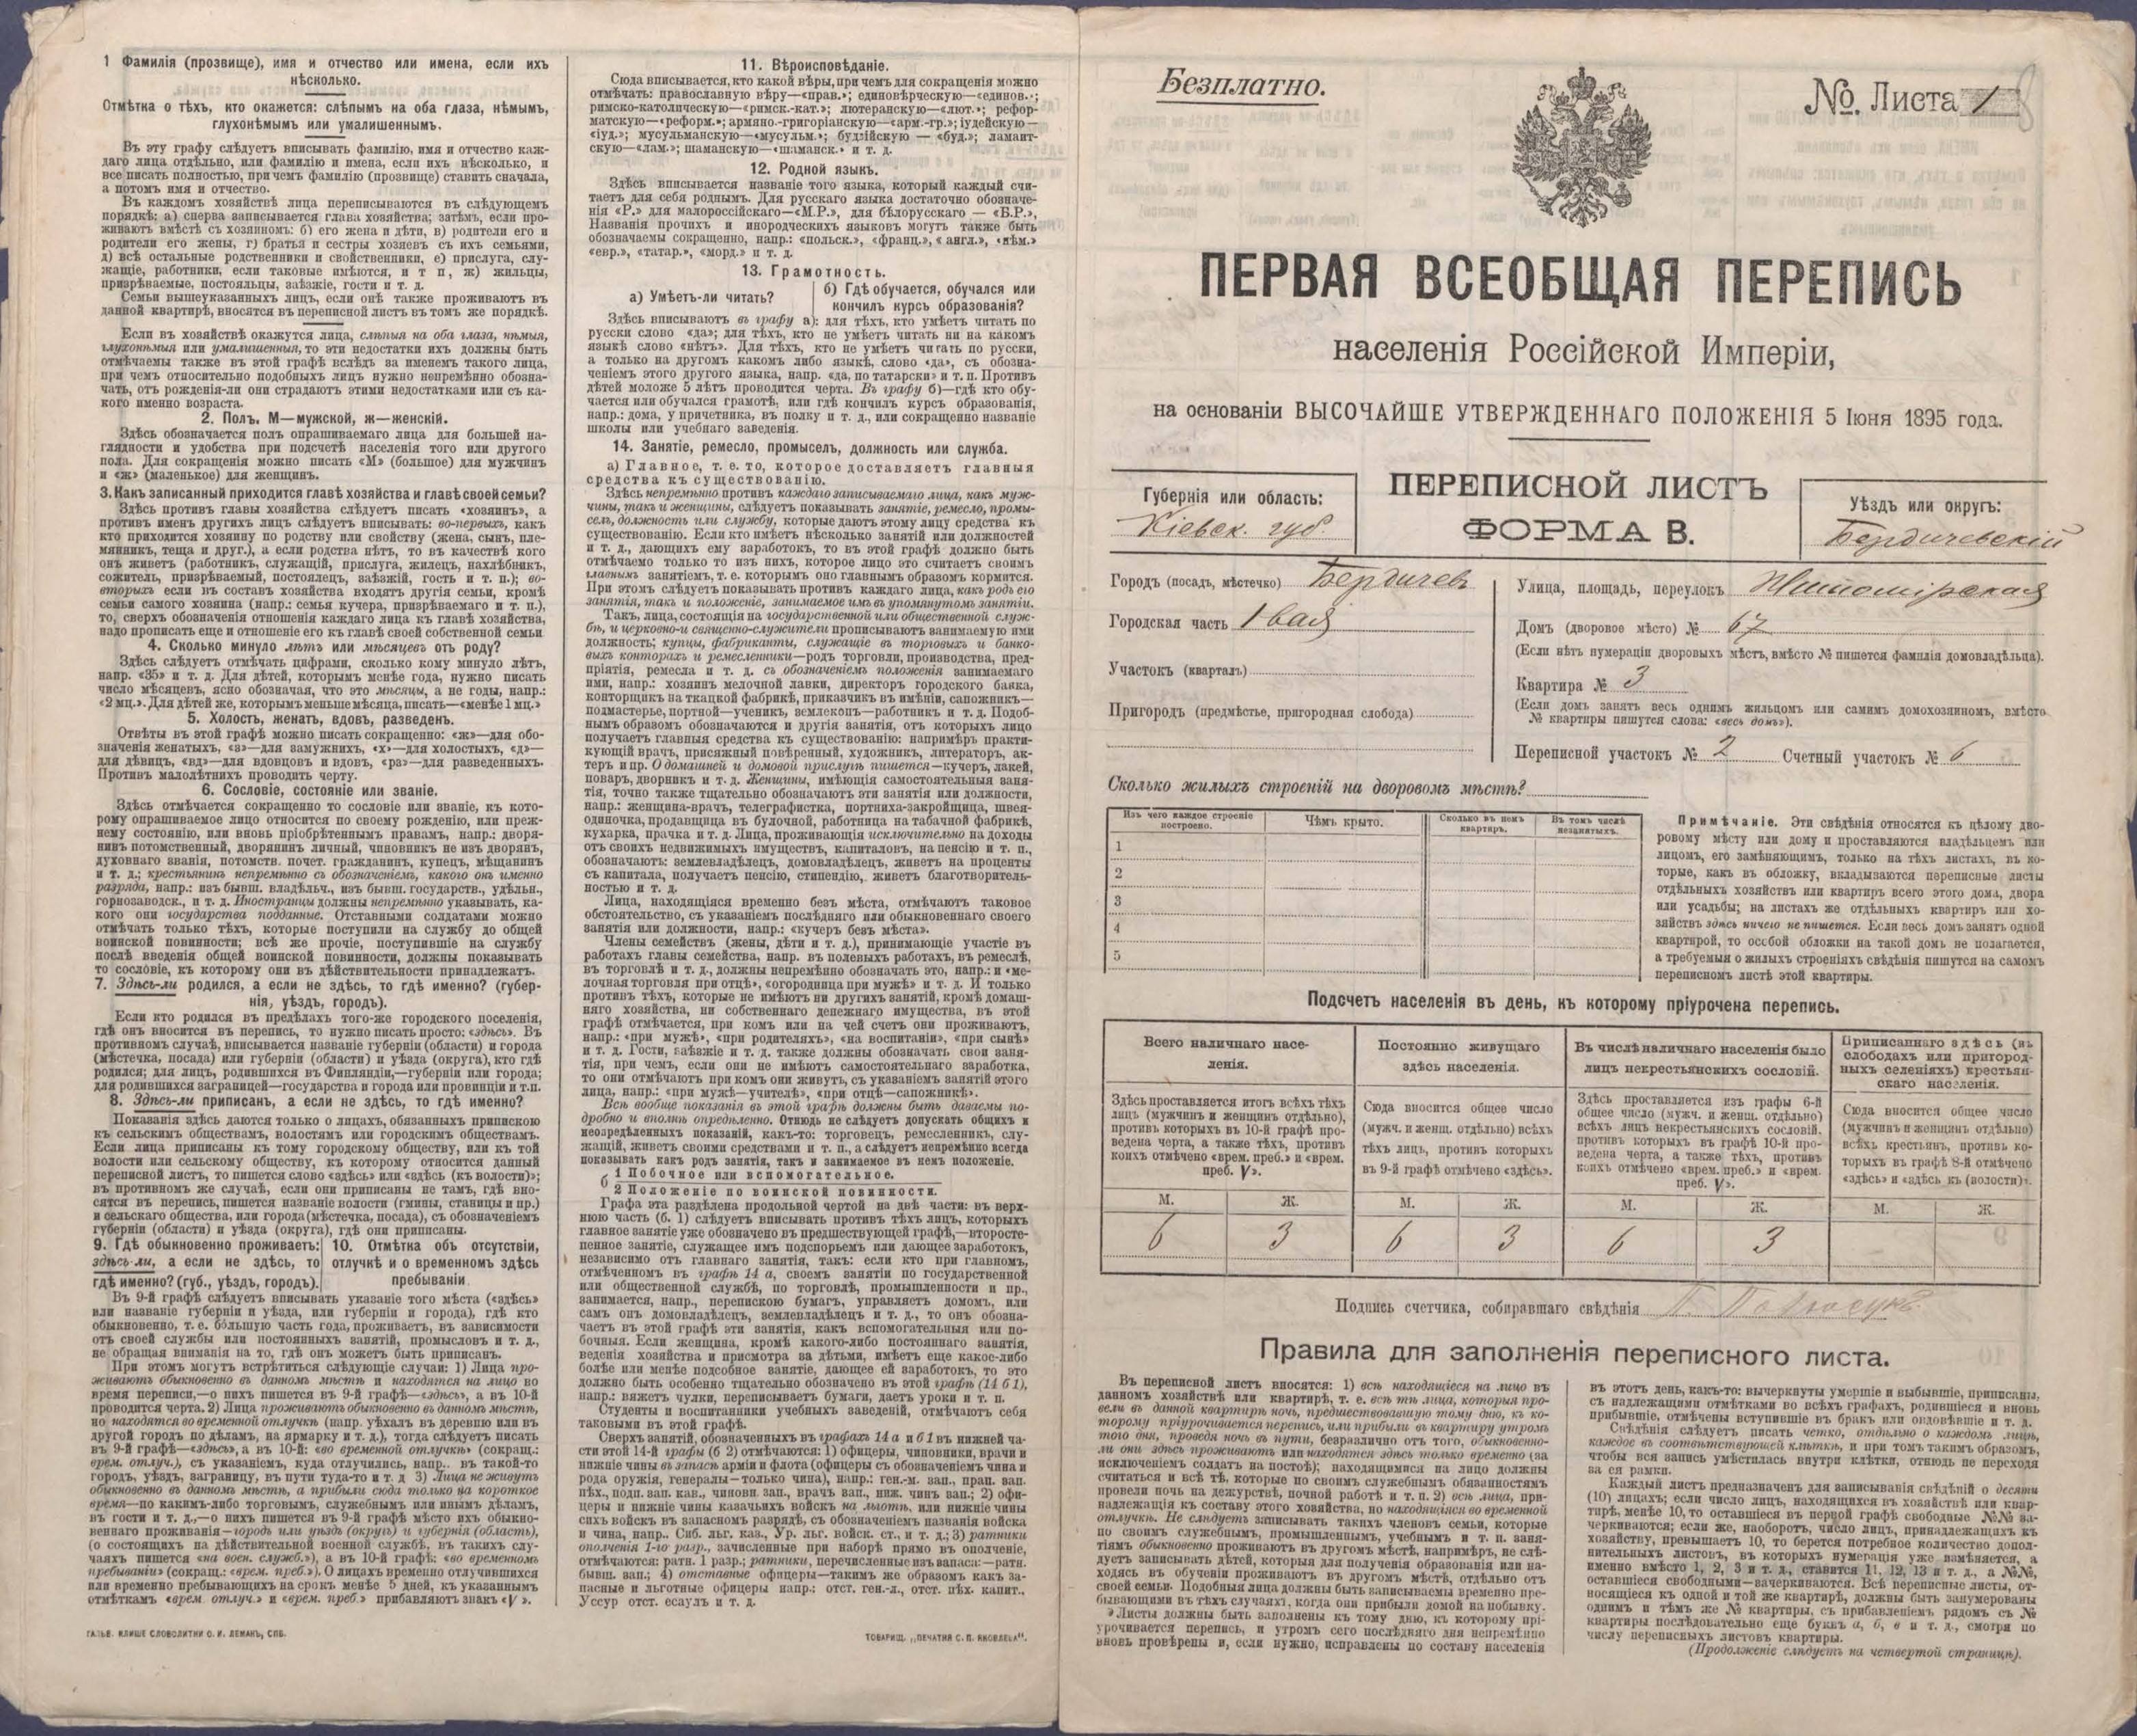 1 Фамилія (прозвище), имя и отчество или имена, если ихъ
нѣсколько.
Отмѣтка о тѣхъ, кто окажется: слѣпымъ на оба глаза, нѣмымъ,
глухонѣмымъ или умалишеннымъ.
Въ эту графу слѣдуетъ вписывать фамилію, имя и отчество каж-
даго лица отдѣльно, или фамилію и имена, если ихъ нѣсколько, и
все писать полностью, при чемъ фамилію (прозвище) ставить сначала,
а потомъ имя и отчество.
Въ каждомъ хозяйствѣ лица переписываются въ слѣдующемъ
порядкѣ: а) сперва записывается глава хозяйства; затѣмъ, если про-
живаютъ вмѣстѣ съ хозяиномъ: б) его жена и дѣти, в) родители его и
родители его жены, г) братья и сестры хозяевъ съ ихъ семьями,
д) всѣ остальные родственники и свойственники, е) прислуга, слу-
жащіе, работники, если таковые имѣются, и т п, ж) жильцы,
призрѣваемые, постояльцы, заѣзжіе, гости и т. д.
Семьи вышеуказанныхъ лицъ, если онѣ также проживаютъ въ
данной квартирѣ, вносятся въ переписной листъ въ томъ же порядкѣ.
Если въ хозяйствѣ окажутся лица, слѣпыя на оба глаза, нѣмыя,
глухонѣмыя или умалишенныя, то эти недостатки ихъ должны быть
отмѣчаемы также въ этой графѣ вслѣдъ за именемъ такого лица,
при чемъ относительно подобныхъ лицъ нужно непремѣнно обозна-
чать, отъ рожденія-ли они страдаютъ этими недостатками или съ ка-
кого именно возраста.
2. Полъ. М—мужской, ж—женскій.
Здѣсь обозначается полъ опрашиваемаго лица для большей на-
глядности и удобства при подсчетѣ населенія того или другого
пола. Для сокращенія можно писать «М» (большое) для мужчинъ
и «ж» (маленькое) для женщинъ.
3. Какъ записанный приходится главѣ хозяйства и главѣ своей семьи?
Здѣсь противъ главы хозяйства слѣдуетъ писать «хозяинъ», а
противъ именъ другихъ лицъ слѣдуетъ вписывать: во-первыхъ, какъ
кто приходится хозяину по родству или свойству (жена, сынъ, пле-
мянникъ, теща и друг.), а если родства нѣтъ, то въ качествѣ кого
онъ живетъ (работникъ, служащій, прислуга, жилецъ, нахлѣбникъ,
сожитель, призрѣваемый, постоялецъ, заѣзжій, гость и т. п.); во-
вторыхъ если въ составъ хозяйства входятъ другія семьи, кромѣ
семьи самого хозяина (напр.: семья кучера, призрѣваемаго и т. п.),
то, сверхъ обозначенія отношенія каждаго лица къ главѣ хозяйства,
надо прописать еще и отношеніе его къ главѣ своей собственной семьи
4. Сколько минуло лѣтъ или мѣсяцевъ отъ роду?
Здѣсь слѣдуетъ отмѣчать цифрами, сколько кому минуло лѣтъ,
напр. «35» и т. д. Для дѣтей, которымъ менѣе года, нужно писать
число мѣсяцевъ, ясно обозначая, что это мѣсяцы, а не годы, напр.:
«2 мц.». Для дѣтей же, которымъ меньше мѣсяца, писать—«менѣе 1 мц.»
5. Холостъ, женатъ, вдовъ, разведенъ.
Отвѣты въ этой графѣ можно писать сокращенно: «ж»—для обо-
значенія женатыхъ, «з»—для замужнихъ, «х»—для холостыхъ, «д»—
для дѣвицъ, «вд»—для вдовцовъ и вдовъ, «рз»—для разведенныхъ.
Противъ малолѣтнихъ проводить черту.
6. Сословіе, состояніе или званіе.
Здѣсь отмѣчается сокращенно то сословіе или званіе, къ кото-
рому опрашиваемое лицо относится по своему рожденію, или преж-
нему состоянію, или вновь пріобрѣтеннымъ правамъ, напр.: дворя-
нинъ потомственный, дворянинъ личный, чиновникъ не изъ дворянъ,
духовнаго званія, потомств. почет. гражданинъ, купецъ, мѣщанинъ
и т. д.; крестьянинъ непремѣнно съ обозначеніемъ, какого онъ именно
разряда, напр.: изъ бывш. владѣльч., изъ бывш. государств., удѣльн.,
горнозаводск., и т. д. Иностранцы должны непремѣнно указывать, ка-
кого они государства подданные. Отставными солдатами можно
отмѣчать только тѣхъ, которые поступили на службу до общей
воинской повинности; всѣ же прочіе, поступившіе на службу
послѣ введенія общей воинской повинности, должны показывать
то сословіе, къ которому они въ дѣйствительности принадлежатъ.
7. Здѣсь-ли родился, а если не здѣсь, то гдѣ именно? (губер-
нія, уѣздъ, городъ).
Если кто родился въ предѣлахъ того-же городского поселенія,
гдѣ онъ вносится въ перепись, то нужно писать просто: «здѣсь». Въ
противномъ случаѣ, вписывается названіе губерніи (области) и города
(мѣстечка, посада) или губерніи (области) и уѣзда (округа), кто гдѣ
родился; для лицъ, родившихся въ Финляндіи,—губерніи или города;
для родившихся заграницей—государства и города или провинціи и т.п.
8. Здѣсь-ли приписанъ, а если не здѣсь, то гдѣ именно?
Показанія здѣсь даются только о лицахъ, обязанныхъ припискою
къ сельскимъ обществамъ, волостямъ или городскимъ обществамъ.
Если лица приписаны къ тому городскому обществу, или къ той
волости или сельскому обществу, къ которому относится данный
переписной листъ, то пишется слово «здѣсь» или «здѣсь (къ волости)»;
въ противномъ же случаѣ, если они приписаны не тамъ, гдѣ вно-
сятся въ перепись, пишется названіе волости (гмины, станицы и пр.)
и сельскаго общества, или города (мѣстечка, посада), съ обозначеніемъ
губерніи (области) и уѣзда (округа), гдѣ они приписаны.
9. Гдѣ обыкновенно проживаетъ:
здѣсь-ли, а если не здѣсь, то
гдѣ именно? (губ., уѣздъ, городъ).
10. Отмѣтка объ отсутствіи,
отлучкѣ и о временномъ здѣсь
пребываніи
Въ 9-й графѣ слѣдуетъ вписывать указаніе того мѣста («здѣсь»
или названіе губерніи и уѣзда, или губерніи и города), гдѣ кто
обыкновенно, т. е. бо́льшую часть года, проживаетъ, въ зависимости
отъ своей службы или постоянныхъ занятій, промысловъ и т. д.,
не обращая вниманія на то, гдѣ онъ можетъ быть приписанъ.
При этомъ могутъ встрѣтиться слѣдующіе случаи: 1) Лица про-
живаютъ обыкновенно въ данномъ мѣстѣ и находятся на лицо во
время переписи,—о нихъ пишется въ 9-й графѣ—«здѣсь», а въ 10-й
проводится черта. 2) Лица проживаютъ обыкновенно въ данномъ мѣстѣ,
но находятся во временной отлучкѣ (напр. уѣхалъ въ деревню или въ
другой городъ по дѣламъ, на ярмарку и т. д.), тогда слѣдуетъ писать
въ 9-й графѣ—«здѣсь», а въ 10-й: «во временной отлучкѣ» (сокращ.:
врем. отлуч.), съ указаніемъ, куда отлучились, напр.. въ такой-то
городъ, уѣздъ, заграницу, въ пути туда-то и т. д 3) Лица не живутъ
обыкновенно въ данномъ мѣстѣ, а прибыли сюда только на короткое
время—по какимъ-либо торговымъ, служебнымъ или инымъ дѣламъ,
въ гости и т. д.,—о нихъ пишется въ 9-й графѣ мѣсто ихъ обыкно-
веннаго проживанія—городъ или уѣздъ (округъ) и губернія (область),
(о состоящихъ на дѣйствительной военной службѣ, въ такихъ слу-
чаяхъ пишется «на воен. службѣ»), а въ 10-й графѣ: «во временномъ
пребываніи» (сокращ.: «врем. преб.»). О лицахъ временно отлучившихся
или временно пребывающихъ на срокъ менѣе 5 дней, къ указаннымъ
отмѣткамъ «врем. отлуч.» и «врем. преб.» прибавляютъ знакъ «V».
СЛОВОЛИТНИ О. И. ЛЕМАНЪ, СПБ.
11. Вѣроисповѣданіе.
Сюда вписывается, кто какой вѣры, при чемъ для сокращенія можно
отмѣчать: православную вѣру—«прав.»; единовѣрческую—«единов.»;
римско-католическую—«римск.-кат.»; лютеранскую—«лют.»; рефор-
матскую—«реформ.»; армяно.-григоріанскую—«арм.-гр.»; іудейскую—
«іуд.»; мусульманскую—«мусульм.»; буддійскую — «буд.»; ламаит-
скую—«лам.»; шаманскую—«шаманск.» и т. д.
12. Родной языкъ.
Здѣсь вписывается названіе того языка, который каждый счи-
таетъ для себя роднымъ. Для русскаго языка достаточно обозначе-
нія «Р.» для малороссійскаго—«М.Р.», для бѣлорусскаго — «Б.Р.»,
Названія прочихъ и инородческихъ языковъ могутъ также быть
обозначаемы сокращенно, напр.: «польск.», «франц.», «англ.», «нѣм.»
«евр.», «татар.», «морд.» и т. д.
13. Грамотность.
а) Умѣетъ-ли читать?
б) Гдѣ обучается, обучался или
кончилъ курсъ образованія?
Здѣсь вписываютъ въ графу а): для тѣхъ, кто умѣетъ читать по
русски слово «да»; для тѣхъ, кто не умѣетъ читать ни на какомъ
языкѣ слово «нѣтъ». Для тѣхъ, кто не умѣетъ читать по русски,
а только на другомъ какомъ либо языкѣ, слово «да», съ обозна-
ченіемъ этого другого языка, напр. «да, по татарски» и т. п. Противъ
дѣтей моложе 5 лѣтъ проводится черта. Въ графу б)—гдѣ кто обу-
чается или обучался грамотѣ, или гдѣ кончилъ курсъ образованія,
напр.: дома, у причетника, въ полку и т. д., или сокращенно названіе
школы или учебнаго заведенія.
14. Занятіе, ремесло, промыселъ, должность или служба.
а) Главное, т. е. то, которое доставляетъ главныя
средства къ существованію.
Здѣсь непремѣнно противъ каждаго записываемаго лица, какъ муж-
чины, такъ и женщины, слѣдуетъ показывать занятіе, ремесло, промы-
селъ, должность или службу, которые даютъ этому лицу средства къ
существованію. Если кто имѣетъ нѣсколько занятій или должностей
и т. д., дающихъ ему заработокъ, то въ этой графѣ должно быть
отмѣчаемо только то изъ нихъ, которое лицо это считаетъ своимъ
главнымъ занятіемъ, т. е. которымъ оно главнымъ образомъ кормится.
При этомъ слѣдуетъ показывать противъ каждаго лица, какъ родъ его
занятія, такъ и положеніе, занимаемое имъ въ упомянутомъ занятіи.
Такъ, лица, состоящія на государственной или общественной служ-
бѣ, и церковно-и священно-служители прописываютъ занимаемую ими
должность; купцы, фабриканты, служащіе въ торговыхъ и банко-
выхъ конторахъ и ремесленники—родъ торговли, производства, пред-
пріятія, ремесла и т. д. съ обозначеніемъ положенія занимаемаго
ими, напр.: хозяинъ мелочной лавки, директоръ городского банка,
конторщикъ на ткацкой фабрикѣ, приказчикъ въ имѣніи, сапожникъ—
подмастерье, портной—ученикъ, землекопъ—работникъ и т. д. Подоб-
нымъ образомъ обозначаются и другія занятія, отъ которыхъ лицо
получаетъ главныя средства къ существованію: напримѣръ практи-
кующій врачъ, присяжный повѣренный, художникъ, литераторъ, ак-
теръ и пр. О домашней и домовой прислугѣ пишется—кучеръ, лакей,
поваръ, дворникъ и т. д. Женщины, имѣющія самостоятельныя заня-
тія, точно также тщательно обозначаютъ эти занятія или должности,
напр.: женщина-врачъ, телеграфистка, портниха-закройщица, швея-
одиночка, продавщица въ булочной, работница на табачной фабрикѣ,
кухарка, прачка и т. д. Лица, проживающія исключительно на доходы
отъ своихъ недвижимыхъ имуществъ, капиталовъ, на пенсію и т. п.,
обозначаютъ: землевладѣлецъ, домовладѣлецъ, живетъ на проценты
съ капитала, получаетъ пенсію, стипендію, живетъ благотворитель-
ностью и т. д.
Лица, находящіяся временно безъ мѣста, отмѣчаютъ таковое
обстоятельство, съ указаніемъ послѣдняго или обыкновеннаго своего
занятія или должности, напр.: «кучеръ безъ мѣста».
Члены семействъ (жены, дѣти и т. д.), принимающіе участіе въ
работахъ главы семейства, напр. въ полевыхъ работахъ, въ ремеслѣ,
въ торговлѣ и т. д., должны непремѣнно обозначать это, напр.: и «ме-
лочная торговля при отцѣ», «огородница при мужѣ» и т. д. И только
противъ тѣхъ, которые не имѣютъ ни другихъ занятій, кромѣ домаш-
няго хозяйства, ни собственнаго денежнаго имущества, въ этой
графѣ отмѣчается, при комъ или на чей счетъ они проживаютъ,
напр.: «при мужѣ», «при родителяхъ», «на воспитаніи», «при сынѣ»
и т. д. Гости, заѣзжіе и т. д. также должны обозначать свои заня-
тія, при чемъ, если они не имѣютъ самостоятельнаго заработка,
то они отмѣчаютъ при комъ они живутъ, съ указаніемъ занятій этого
лица, напр.: «при мужѣ—учителѣ», «при отцѣ—сапожникѣ».
Всѣ вообще показанія въ этой графѣ должны быть даваемы по-
дробно и вполнѣ опредѣленно. Отнюдь не слѣдуетъ допускать общихъ и
неопредѣленныхъ показаній, какъ-то: торговецъ, ремесленникъ, слу-
жащій, живетъ своими средствами и т. п., а слѣдуетъ непремѣнно всегда
показывать какъ родъ занятія, такъ и занимаемое въ немъ положеніе.
б
1 Побочное или вспомогательное.
2 Положеніе по воинской повинности.
Графа эта раздѣлена продольной чертой на двѣ части: въ верх-
нюю часть (б. 1) слѣдуетъ вписывать противъ тѣхъ лицъ, которыхъ
главное занятіе уже обозначено въ предшествующей графѣ,—второсте-
пенное занятіе, служащее имъ подспорьемъ или дающее заработокъ,
независимо отъ главнаго занятія, такъ: если кто при главномъ,
отмѣченномъ въ графѣ 14 а, своемъ занятіи по государственной
или общественной службѣ, по торговлѣ, промышленности и пр.,
занимается, напр., перепискою бумагъ, управляетъ домомъ, или
самъ онъ домовладѣлецъ, землевладѣлецъ и т. д., то онъ обозна-
чаетъ въ этой графѣ эти занятія, какъ вспомогательныя или по-
бочныя. Если женщина, кромѣ какого-либо постояннаго занятія,
веденія хозяйства и присмотра за дѣтьми, имѣетъ еще какое-либо
болѣе или менѣе подобное занятіе, дающее ей заработокъ, то это
должно быть особенно тщательно обозначено въ этой графѣ (14 б 1),
напр.: вяжетъ чулки, переписываетъ бумаги, даетъ уроки и т. п.
Студенты и воспитанники учебныхъ заведеній, отмѣчаютъ себя
таковыми въ этой графѣ.
Сверхъ занятій, обозначенныхъ въ графахъ 14 а и б 1 въ нижней ча-
сти этой 14-й графы (б 2) отмѣчаются: 1) офицеры, чиновники, врачи и
нижніе чины въ запасѣ арміи и флота (офицеры съ обозначеніемъ чина и
рода оружія, генералы—только чина), напр.: ген.-м. зап., прап. зап.
пѣх., подп. зап. кав., чиновн. зап., врачъ зап., ниж. чинъ зап.; 2) офи-
церы и нижніе чины казачьихъ войскъ на льготѣ, или нижніе чины
сихъ войскъ въ запасномъ разрядѣ, съ обозначеніемъ названія войска
и чина, напр.. Сиб. льг. каз., Ур. льг. войск. ст., и т. д.; 3) ратники
ополченія 1-го разр., зачисленные при наборѣ прямо въ ополченіе,
отмѣчаются: ратн. 1 разр.; ратники, перечисленные изъ запаса:—ратн.
бывш. зап.; 4) отставные офицеры—такимъ же образомъ какъ за-
пасные и льготные офицеры напр.: отст. ген.-л., отст. пѣх. капит.,
Уссур отст. есаулъ и т. д.
ТОВАРИЩ. „ПЕЧАТНЯ С. П. ЯКОВЛЕВА“.
Безплатно.
№ Листа 1
ПЕРВАЯ ВСЕОБЩАЯ ПЕРЕПИСЬ
населенія Россійской Имперіи,
на основаніи ВЫСОЧАЙШЕ УТВЕРЖДЕННАГО ПОЛОЖЕНІЯ 5 Іюня 1895 года.
ПЕРЕПИСНОЙ ЛИСТЪ
ФОРМА В.
Губернія или область:
Кіевск. губ.
Уѣздъ или округъ:
Бердичевскій
Городъ (посадъ, мѣстечко) Бердичевъ
Городская часть 1вая
Участокъ (кварталъ)
Пригородъ (предмѣстье, пригородная слобода)
Улица, площадь, переулокъ Житомірская
Домъ (дворовое мѣсто) № 67
(Если нѣтъ нумераціи дворовыхъ мѣстъ, вмѣсто № пишется фамилія домовладѣльца).
Квартира № 3
(Если домъ занятъ весь однимъ жильцомъ или самимъ домохозяиномъ, вмѣсто
№ квартиры пишутся слова: «весь домъ»).
Переписной участокъ № 2 Счетный участокъ № 6
Сколько жилыхъ строеній на дворовомъ мѣстѣ?
Изъ чего каждое строеніе
построено.
Чѣмъ крыто.
Сколько въ немъ
квартиръ.
Въ томъ числѣ
незанятыхъ.
1
2
3
4
5
Примѣчаніе. Эти свѣдѣнія относятся къ цѣлому дво-
ровому мѣсту или дому и проставляются владѣльцемъ или
лицомъ, его замѣняющимъ, только на тѣхъ листахъ, въ ко-
торые, какъ въ обложку, вкладываются переписные листы
отдѣльныхъ хозяйствъ или квартиръ всего этого дома, двора
или усадьбы; на листахъ же отдѣльныхъ квартиръ или хо-
зяйствъ здѣсь ничего не пишется. Если весь домъ занятъ одной
квартирой, то особой обложки на такой домъ не полагается,
а требуемыя о жилыхъ строеніяхъ свѣдѣнія пишутся на самомъ
переписномъ листѣ этой квартиры.
Подсчетъ населенія въ день, къ которому пріурочена перепись.
Всего наличнаго насе-
ленія.
Постоянно живущаго
здѣсь населенія.
Въ числѣ наличнаго населенія было
лицъ некрестьянскихъ сословій.
Приписаннаго здѣсь (въ
слободахъ или пригород-
ныхъ селеніяхъ) крестьян-
скаго населенія.
Здѣсь проставляется итогъ всѣхъ тѣхъ
лицъ (мужчинъ и женщинъ отдѣльно),
противъ которыхъ въ 10-й графѣ про-
ведена черта, а также тѣхъ, противъ
коихъ отмѣчено «врем. преб.» и «врем.
преб. V».
Сюда вносится общее число
(мужч. и женщ. отдѣльно) всѣхъ
тѣхъ лицъ, противъ которыхъ
въ 9-й графѣ отмѣчено «здѣсь».
Здѣсь проставляется изъ графы 6-й
общее число (мужч. и женщ. отдѣльно)
всѣхъ лицъ некрестьянскихъ сословій,
противъ которыхъ въ графѣ 10-й про-
ведена черта, а также тѣхъ, противъ
коихъ отмѣчено «врем. преб.» и «врем.
преб. V».
Сюда вносится общее число
(мужчинъ и женщинъ отдѣльно)
всѣхъ крестьянъ, противъ ко-
торыхъ въ графѣ 8-й отмѣчено
«здѣсь» и «здѣсь къ (волости)».
М. Ж. М. Ж. М. Ж. М. Ж.
6 3 6 3 6 3
Подпись счетчика, собиравшаго свѣдѣнія
Правила для заполненія переписного листа.
Въ переписной листъ вносятся: 1) всѣ находящіеся на лицо въ
данномъ хозяйствѣ или квартирѣ, т. е. всѣ тѣ лица, которыя про-
вели въ данной квартирѣ ночь, предшествовавшую тому дню, къ ко-
торому пріурочивается перепись, или прибыли въ квартиру утромъ
того дня, проведя ночь въ пути, безразлично отъ того, обыкновенно-
ли они здѣсь проживаютъ или находятся здѣсь только временно (за
исключеніемъ солдатъ на постоѣ); находящимися на лицо должны
считаться и всѣ тѣ, которые по своимъ служебнымъ обязанностямъ
провели ночь на дежурствѣ, ночной работѣ и т. п. 2) всѣ лица, при-
надлежащія къ составу этого хозяйства, но находящіяся во временной
отлучкѣ. Не слѣдуетъ записывать такихъ членовъ семьи, которые
по своимъ служебнымъ, промышленнымъ, учебнымъ и т. п. заня-
тіямъ обыкновенно проживаютъ въ другомъ мѣстѣ, напримѣръ, не слѣ-
дуетъ записывать дѣтей, которыя для полученія образованія или на-
ходясь въ обученіи проживаютъ въ другомъ мѣстѣ, отдѣльно отъ
своей семьи. Подобныя лица должны быть записываемы временно пре-
бывающими въ тѣхъ случаяхъ, когда они прибыли домой на побывку.
Листы должны быть заполнены къ тому дню, къ которому прі-
урочивается перепись, и утромъ сего послѣдняго дня непремѣнно
вновь провѣрены и, если нужно, исправлены по составу населенія
въ этотъ день, какъ-то: вычеркнуты умершіе и выбывшіе, приписаны,
съ надлежащими отмѣтками во всѣхъ графахъ, родившіеся и вновь
прибывшіе, отмѣчены вступившіе въ бракъ или овдовѣвшіе и т. д.
Свѣдѣнія слѣдуетъ писать четко, отдѣльно о каждомъ лицѣ,
каждое въ соотвѣтствующей клѣткѣ, и при томъ такимъ образомъ,
чтобы вся запись умѣстилась внутри клѣтки, отнюдь не переходя
за ея рамки.
Каждый листъ предназначенъ для записыванія свѣдѣній о десяти
(10) лицахъ; если число лицъ, находящихся въ хозяйствѣ или квар-
тирѣ, менѣе 10, то оставшіеся въ первой графѣ свободные №№ за-
черкиваются; если же, наоборотъ, число лицъ, принадлежащихъ къ
хозяйству, превышаетъ 10, то берется потребное количество допол-
нительныхъ листовъ, въ которыхъ нумерація уже измѣняется, а
именно вмѣсто 1, 2, 3 и т. д., ставится 11, 12, 13 и т. д., а №№,
оставшіеся свободными—зачеркиваются. Всѣ переписные листы, от-
носящіеся къ одной и той же квартирѣ, должны быть занумерованы
однимъ и тѣмъ же № квартиры, съ прибавленіемъ рядомъ съ №
квартиры послѣдовательно еще буквъ а, б, в и т. д., смотря по
числу переписныхъ листовъ квартиры.
(Продолженіе слѣдуетъ на четвертой страницѣ).